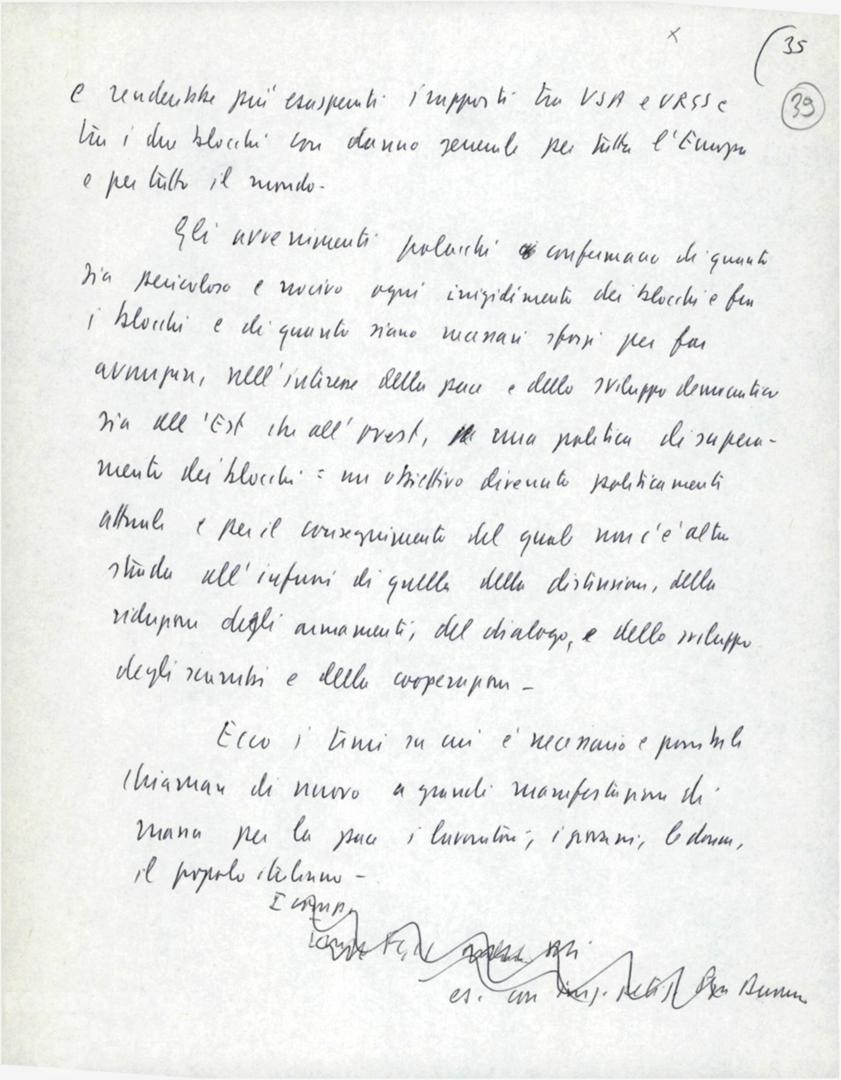 x
35
39
e renderebbe più esasperati i rapporti tra USA e URSS e
tra i due blocchi con danno generale per tutta l'Europa
e per tutto il mondo -
Gli avvenimenti polacchi confermano di quanto
sia pericoloso e nocivo ogni irrigidimento dei blocchi e fra
i blocchi e di quanto siano necessari sforzi per far
avanzare, nell'interesse della pace e dello sviluppo democratico
sia all'Est che all'ovest, una politica di supera-
mento dei blocchi: un obiettivo divenuto politicamente
attuale e per il conseguimento del quale non c'è altra
strada all'infuori di quella della distensione, della
riduzione degli armamenti, del dialogo, e dello sviluppo
degli scambi e della cooperazione -
Ecco i temi su cui è necessario e possibile
chiamare di nuovo a grandi manifestazioni di
massa per la pace i lavoratori, i giovani, le donne,
il popolo italiano -